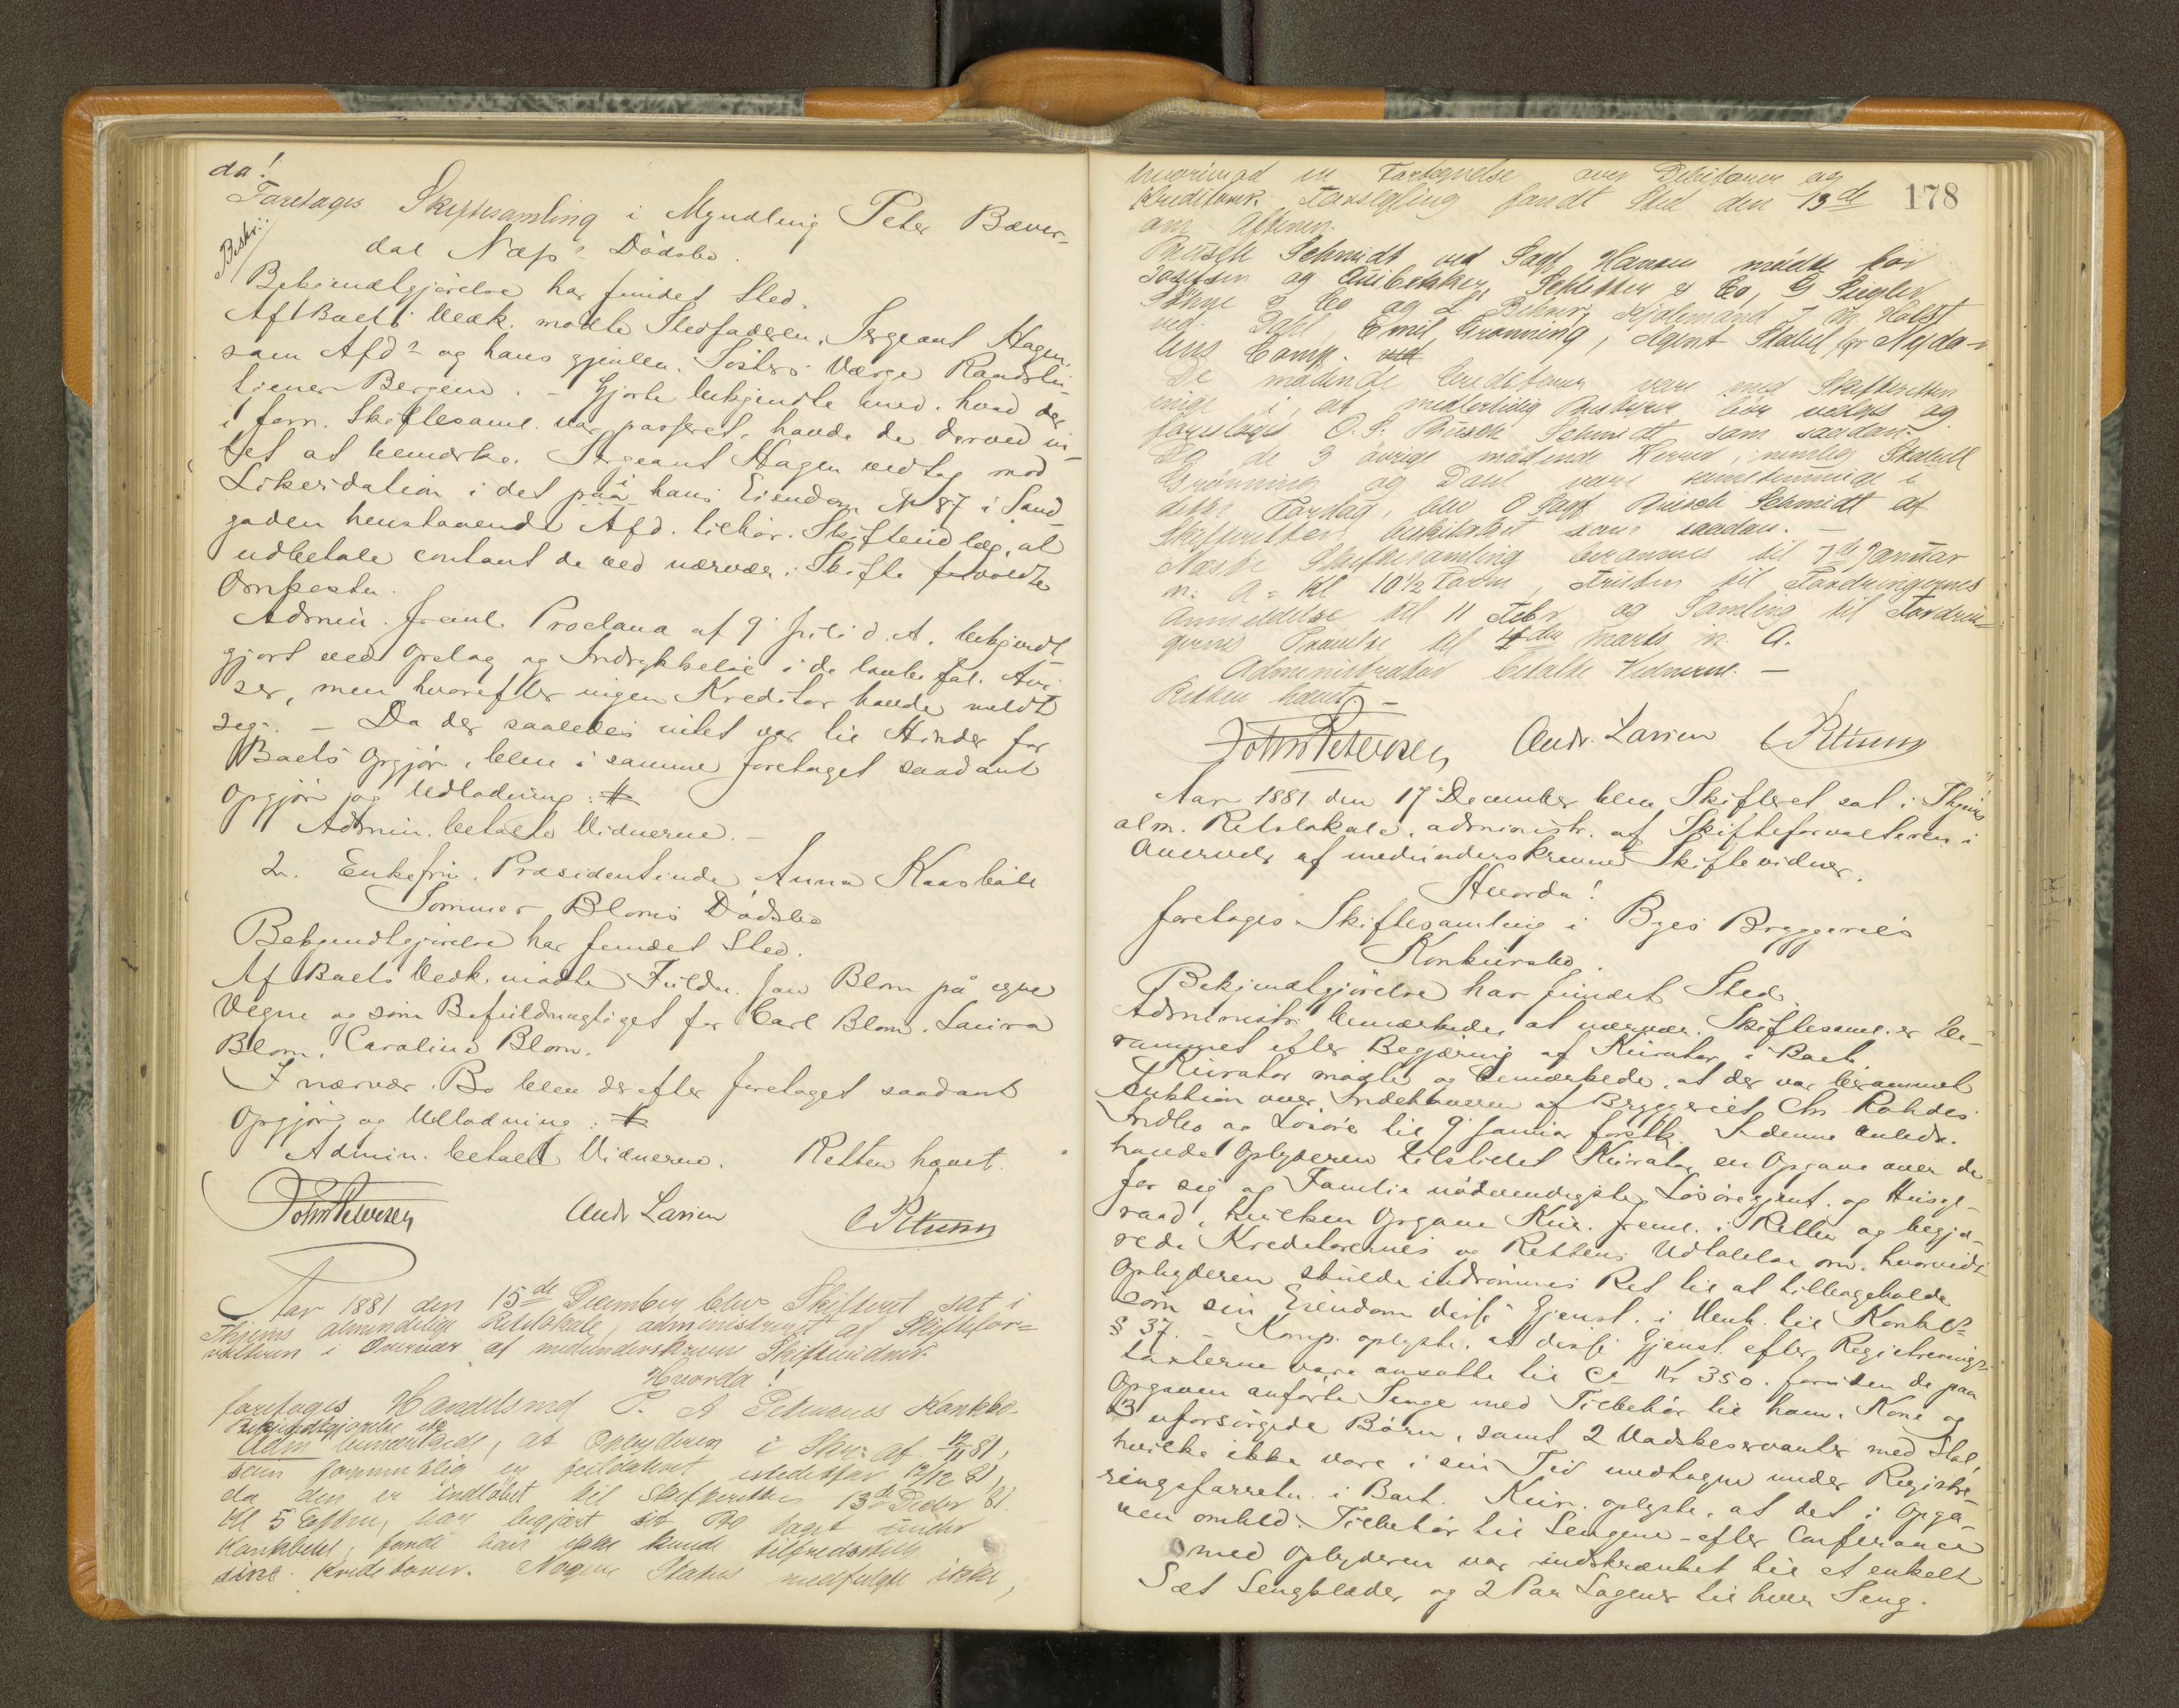 da!
Foretages Skiftesamling i Myndling Peter Bæver-
dal Næss' Dødsbo.
Beskr:
Bekjendtgjørelse har fundet Sted.
Af Boets Vedk. mødte Stedfaderen, Sergeant Hagen,
som Afd og hans gjenlev. Søsters Værge
Bergem. - Gjorte bekjendte med, hvad der
i forr. Skiftesaml. var passeret, havde de derved in-
tet at bemærke. Sergeant Hagen vedtog mod
Likvidation i det paa hans Eiendom No 87 i Sand-
gaden henstaaende Afd. tilhør. Skifteudlæg, at
udbetale contant de ved nærvær. Skifte forvoldte
Omkoster.
Admin. freml. Proclama af 9 Juli d. A. bekjendt
gjort ved Opslag og Indrykkelse i de lovbefal. Avi-
ser, men hvorefter ingen Kreditor havde meldt
sig. - Da der saaledes intet var til Hinder for
Boets Opgjør, blev i samme foretaget saadant
Opgjør og Udlodning: #
Admin. betalte Vidnerne. -
2. Enkefru. Præsidentinde Anna Kaasbøll
Sommer Bloms Dødsbo
Bekjendtgjørelse har fundet Sted.
Af Boets Vedk. mødte Fuldm. Jan Blom på egne
Vegne og som Befuldmægtiget for Carl Blom, Laura
Blom, Caroline Blom.
I nærvær. Bo blev derefter foretaget saadant
Opgjør og Udlodning: #
Admin. betalt Vidnerne. Retten hævet.
John Petersen Andr. Larsen
Aar 1881 den 15de December blev Skifteret sat i
Thjems almindelige Retslokale, administreret af Skiftefor=
valteren i Overvær af medunderskrevne Skiftevidner.
Hvorda!
foretoges Handelsmd P. A. Konkbo.
Bekjendtgjørelse
Adm bemærkede, at Opbyderen i Skr: af 12/11 81,
som formentlig er feildateret istedetfor 12/12 81,
da den er indløbet til Skifteretten 13de Decbr 81
Kl 5 Efterm, har begjært sit Bo taget under
Konkbeh, fordi han ikke kunde tilfredsstille
sine Kreditorer. Nogen Status medfulgte ikke,
hvorimod en Fortegnelse over Debitorer og 178
Kreditorer. Forsegling fandt Sted den 13de
om Aftenen.
Busch Schmidt ved Sagf. Hansen mødte for
Josefsen og Schlytter & Co, G
Søhne & Co og L
ved Dahl, Emil Grønning, Agent Stabell for Nyda-
lens Comp.
De mødende Creditorer vare med Skifteretten
enige i, at midlertidig Bestyrer bør vælges og
foresloges O. S. Busch Schmidt som saadan.
Da de 3 øvrige mødende Herrer, nemlig Stabell
Grønning og Dahl vare samstemmige i
dette Forslag, blev O Sagf. Busch Schmidt af
Skifteretten beskikket som saadan. -
Næste Skiftesamling berammes til 7de Januar
n. A. Kl 10½ Form, Fristen til Fordringernes
Anmeldelse til 11 Febr og Samling til Fordrin-
gernes Prøvelse til 4de Marts n. A.
Administrator betalte Vidnerne. -
Retten hævet. -
John Petersen Andr. Larsen
Aar 1881 den 17 December blev Skifteret sat i Thjems
alm. Retslokale, administr. af Skifteforvalteren i
Overvær af medunderskrevne Skiftevidner.
Hvorda!
foretoges Skiftesamling i Byes Bryggeries
Konkursbo.
Bekjendtgjørelse har fundet Sted.
Administr. bemærkede, at nærvær. Skiftesaml. er be-
rammet efter Begjæring af Kurator i Boet.
Kurator mødte og bemærkede, at der var berammet
Auktion over Indehaveren af Bryggeriet Chr Rohdes
Indbo og Løsøre til 9 Januar førstk. I denne Anledn.
havde Opbyderen tilstillet Kurator en Opgave over de
for sig og Familie nødvendigste Løsøregjenst. og Husge-
raad, hvilken Opgave Kur. freml. i Retten og begjæ-
rede Kreditorernes og Rettens Udtalelse om, hvorvidt
Opbyderen skulde indrømmes Ret til at tilbageholde
som sin Eiendom disse Gjenst. i Henh. til Konkl's
§ 37. - Komp. oplyste, at disse Gjenst. efter Registrerings-
taxterne vare ansatte til ca Kr 350. foruden de paa
Opgaven anførte Senge med Tilbehør til ham, Kone og
3 uforsørgede Børn, samt 2 Vadskeservanter med Stel,
hvilke ikke vare i sin Tid medtagne under Registre-
ringsforretn. i Boet. Kur. oplyste, at det i Opga-
ven omhld. Tilbehør til Sengene - efter Conferance
med Opbyderen var indskrænket til et enkelt
Sæt Sengklæder og 2 Par Lagener til hver Seng.